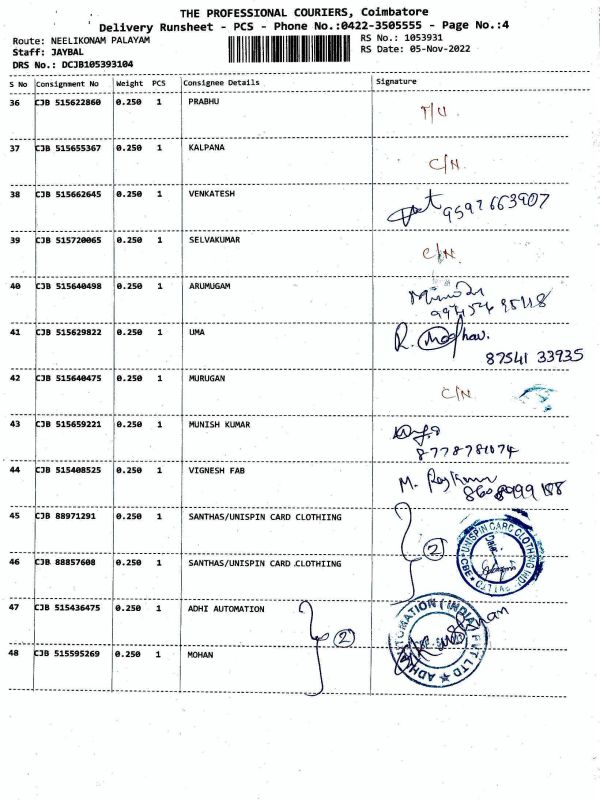 THE PROFESSIONAL COURIERS, Coimbatore
Delivery Runsheet - PCS - Phone No.:0422-3505555 - Page No.:4
Route: NEELIKONAM PALAYAM
RS No.: 1053931
Staff: JAYBAL
RS Date: 05-Nov-2022
DRS No.: DCJB105393104
S No Consignment No Weight PCS Consignee Details Signature
36 CJB 515622860 0.250 1 PRABHU
37 CJB 515655367 0.250 1 KALPANA C/N.
38 CJB 515662645 0.250 1 VENKATESH 9597663907
39 CJB 515720065 0.250 1 SELVAKUMAR C/N.
40 CJB 515640498 0.250 1 ARUMUGAM
41 CJB 515629822 0.250 1 UMA R.
87541 33935
42 CJB 515640475 0.250 1 MURUGAN C/N.
43 CJB 515659221 0.250 1 MUNISH KUMAR
8778781074
44 CJB 515408525 0.250 1 VIGNESH FAB M.
45 CJB 88971291 0.250 1 SANTHAS/UNISPIN CARD CLOTHIING
2
UNISPIN CARD CLOTHING
46 CJB 88857608 0.250 1 SANTHAS/UNISPIN CARD CLOTHIING
47 CJB 515436475 0.250 1 ADHI AUTOMATION
2
ADHI AUTOMATION (INDIA) PVT LTD
48 CJB 515595269 0.250 1 MOHAN